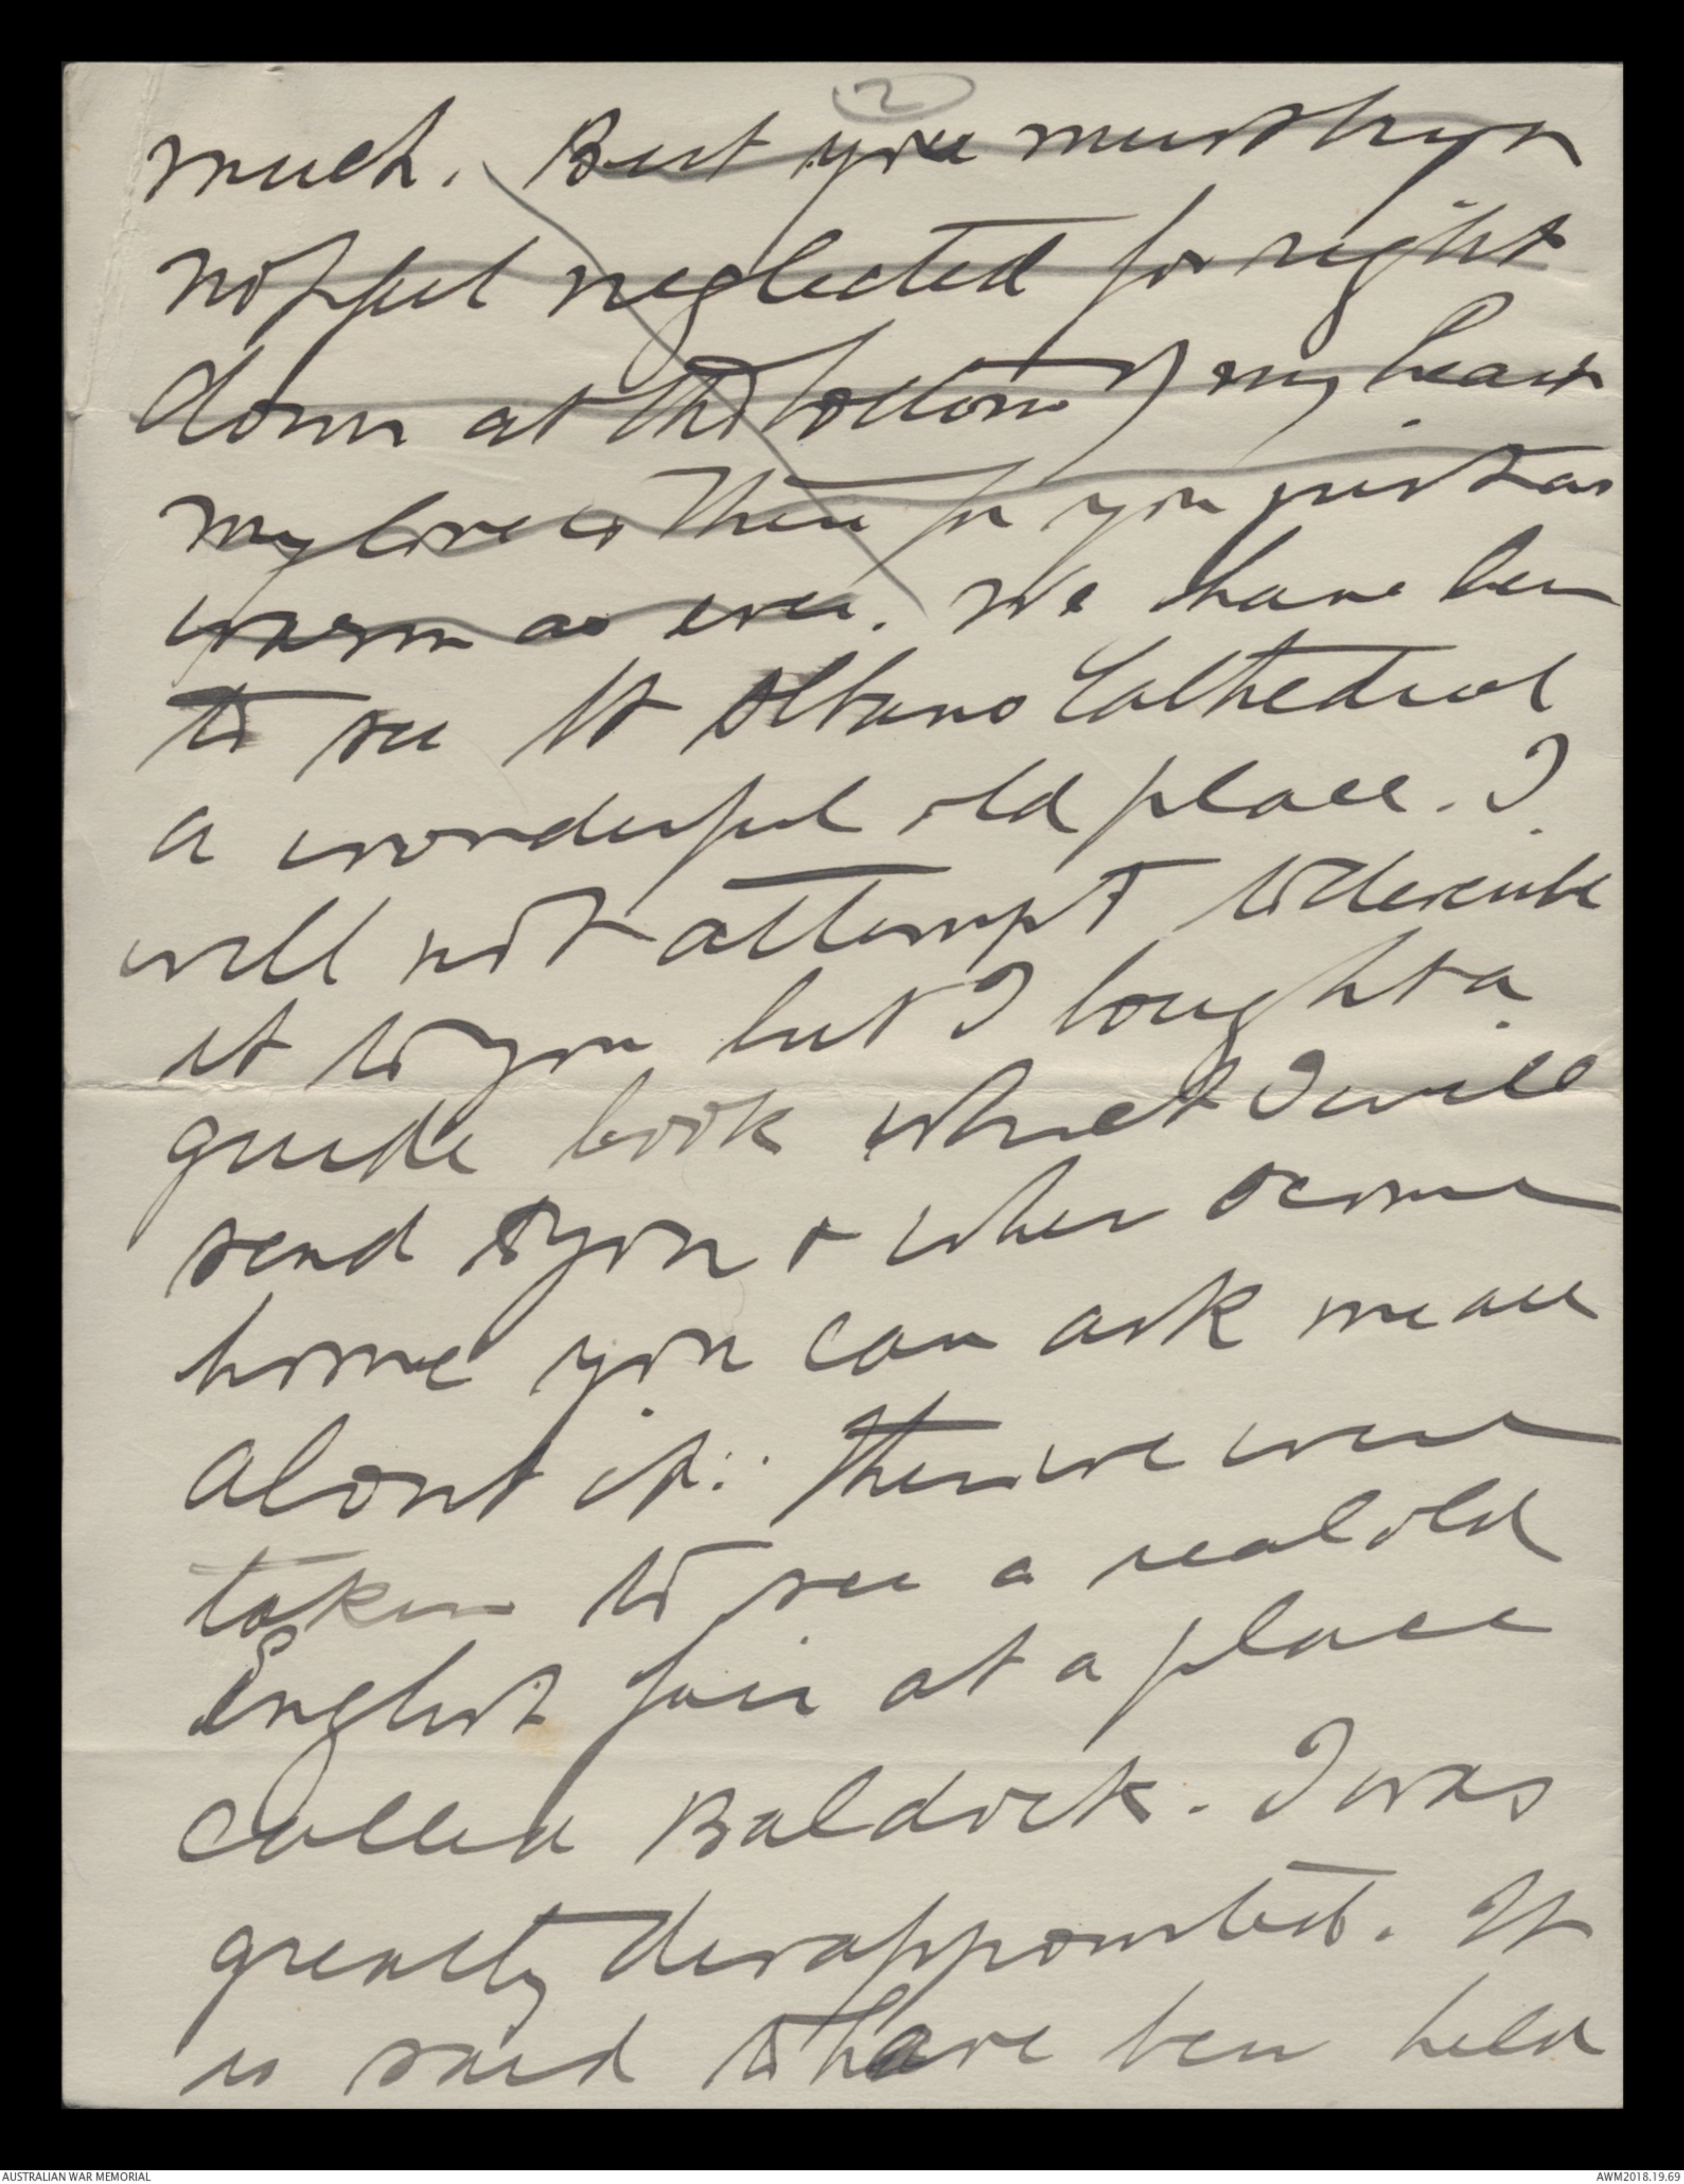 2
much. But you must try &
not feel neglected for right
down at the bottom of my heart
my love is there for you just as
warm as ever. We have been
to see St Albans Cathedral
a wonderful old place. I
will not attempt to describe
it to you but I bought a
guide book which I will
send to you & when I come
home you can ask me all
about it. Then we were
taken to see a real old
English fair at a place
called Baldock. I was
greatly disappointed. It
is said to have been held
AUSTRALIAN WAR MEMORIAL
AWM2018.19.69